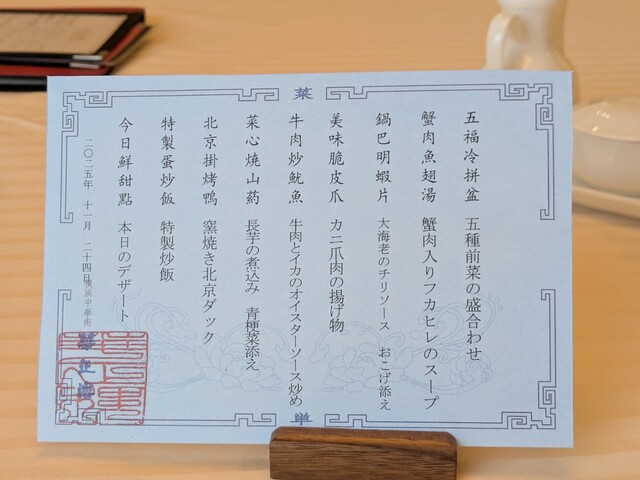 菜
五福冷拼盆 五種前菜の盛合わせ
蟹肉魚翅湯 蟹肉入りフカヒレのスープ
鍋巴明蝦片 大海老のチリソース おこげ添え
美味脆皮爪 カニ爪肉の揚げ物
牛肉炒魷魚 牛肉とイカのオイスターソース炒め
菜心焼山薬 長芋の煮込み 青梗菜添え
北京掛烤鴨 窯焼き北京ダック
特製蛋炒飯 特製炒飯
今日鮮甜點 本日のデザート
二〇二五年 十一月 二十四日
横浜中華街
単